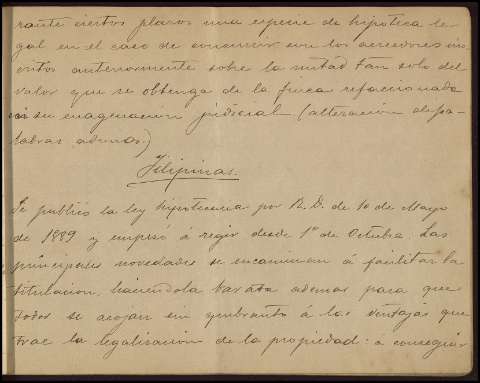 rante ciertos plazos una especie de hipoteca le-
gal en el caso de concurrir con los acreedores ins-
critos anteriormente sobre la mitad tan solo del
valor que se obtenga de la finca refaccionada
en su enagenacion judicial (alteración de pa-
labras ademas.)
Filipinas.
Se publicó la ley hipotecaria por R. D. de 10 de Mayo
de 1889 y empezó á regir desde 1º de Octubre. Las
principales novedades se encaminan á facilitar la
titulacion, haciendola barata ademas para que
todos se acojan sin quebranto á las ventajas que
trae la legalizacion de la propiedad: á conseguir